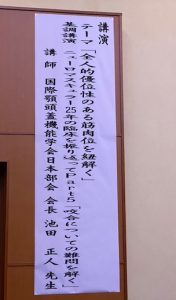 講演
テーマ「全人的優位性のある筋肉位を紐解く」
基調講演
ニューロマスキュラー25年の臨床を振り返ってPart5「咬合についての難問を解く」
講師 国際顎頭蓋機能学会日本部会 会長 池田 正人 先生